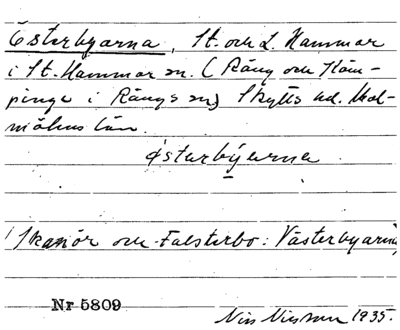 Österbyarna, St. och L. Hammar
i St. Hammar sn. (Räng och Käm-
pinge i Rängs sn) Skytts hd. Mal-
möhus län.
österbyarna
i Skanör och Falsterbo: Västerbyarna
Nr 5809
Nils Nilsson 1935.